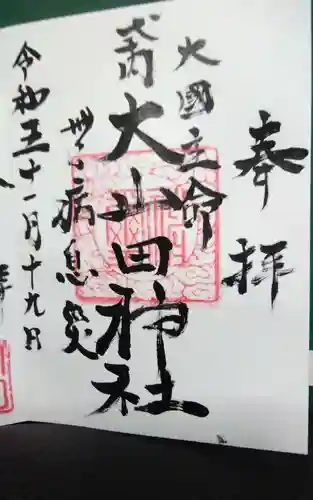 奉拝
大國主命
式内
大山田神社
無病息災
令和五年十一月十九日